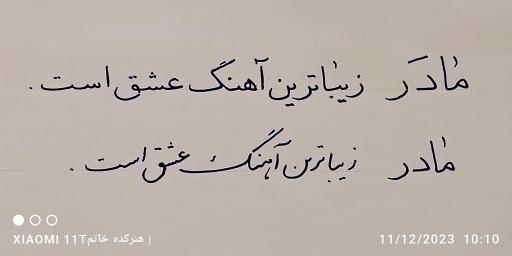 مادَر زیباترین آهنگ عشق است.
مادر زیباترین آهنگ عشق است.
XIAOMI 11T هنرکده خاتم |
11/12/2023 10:10